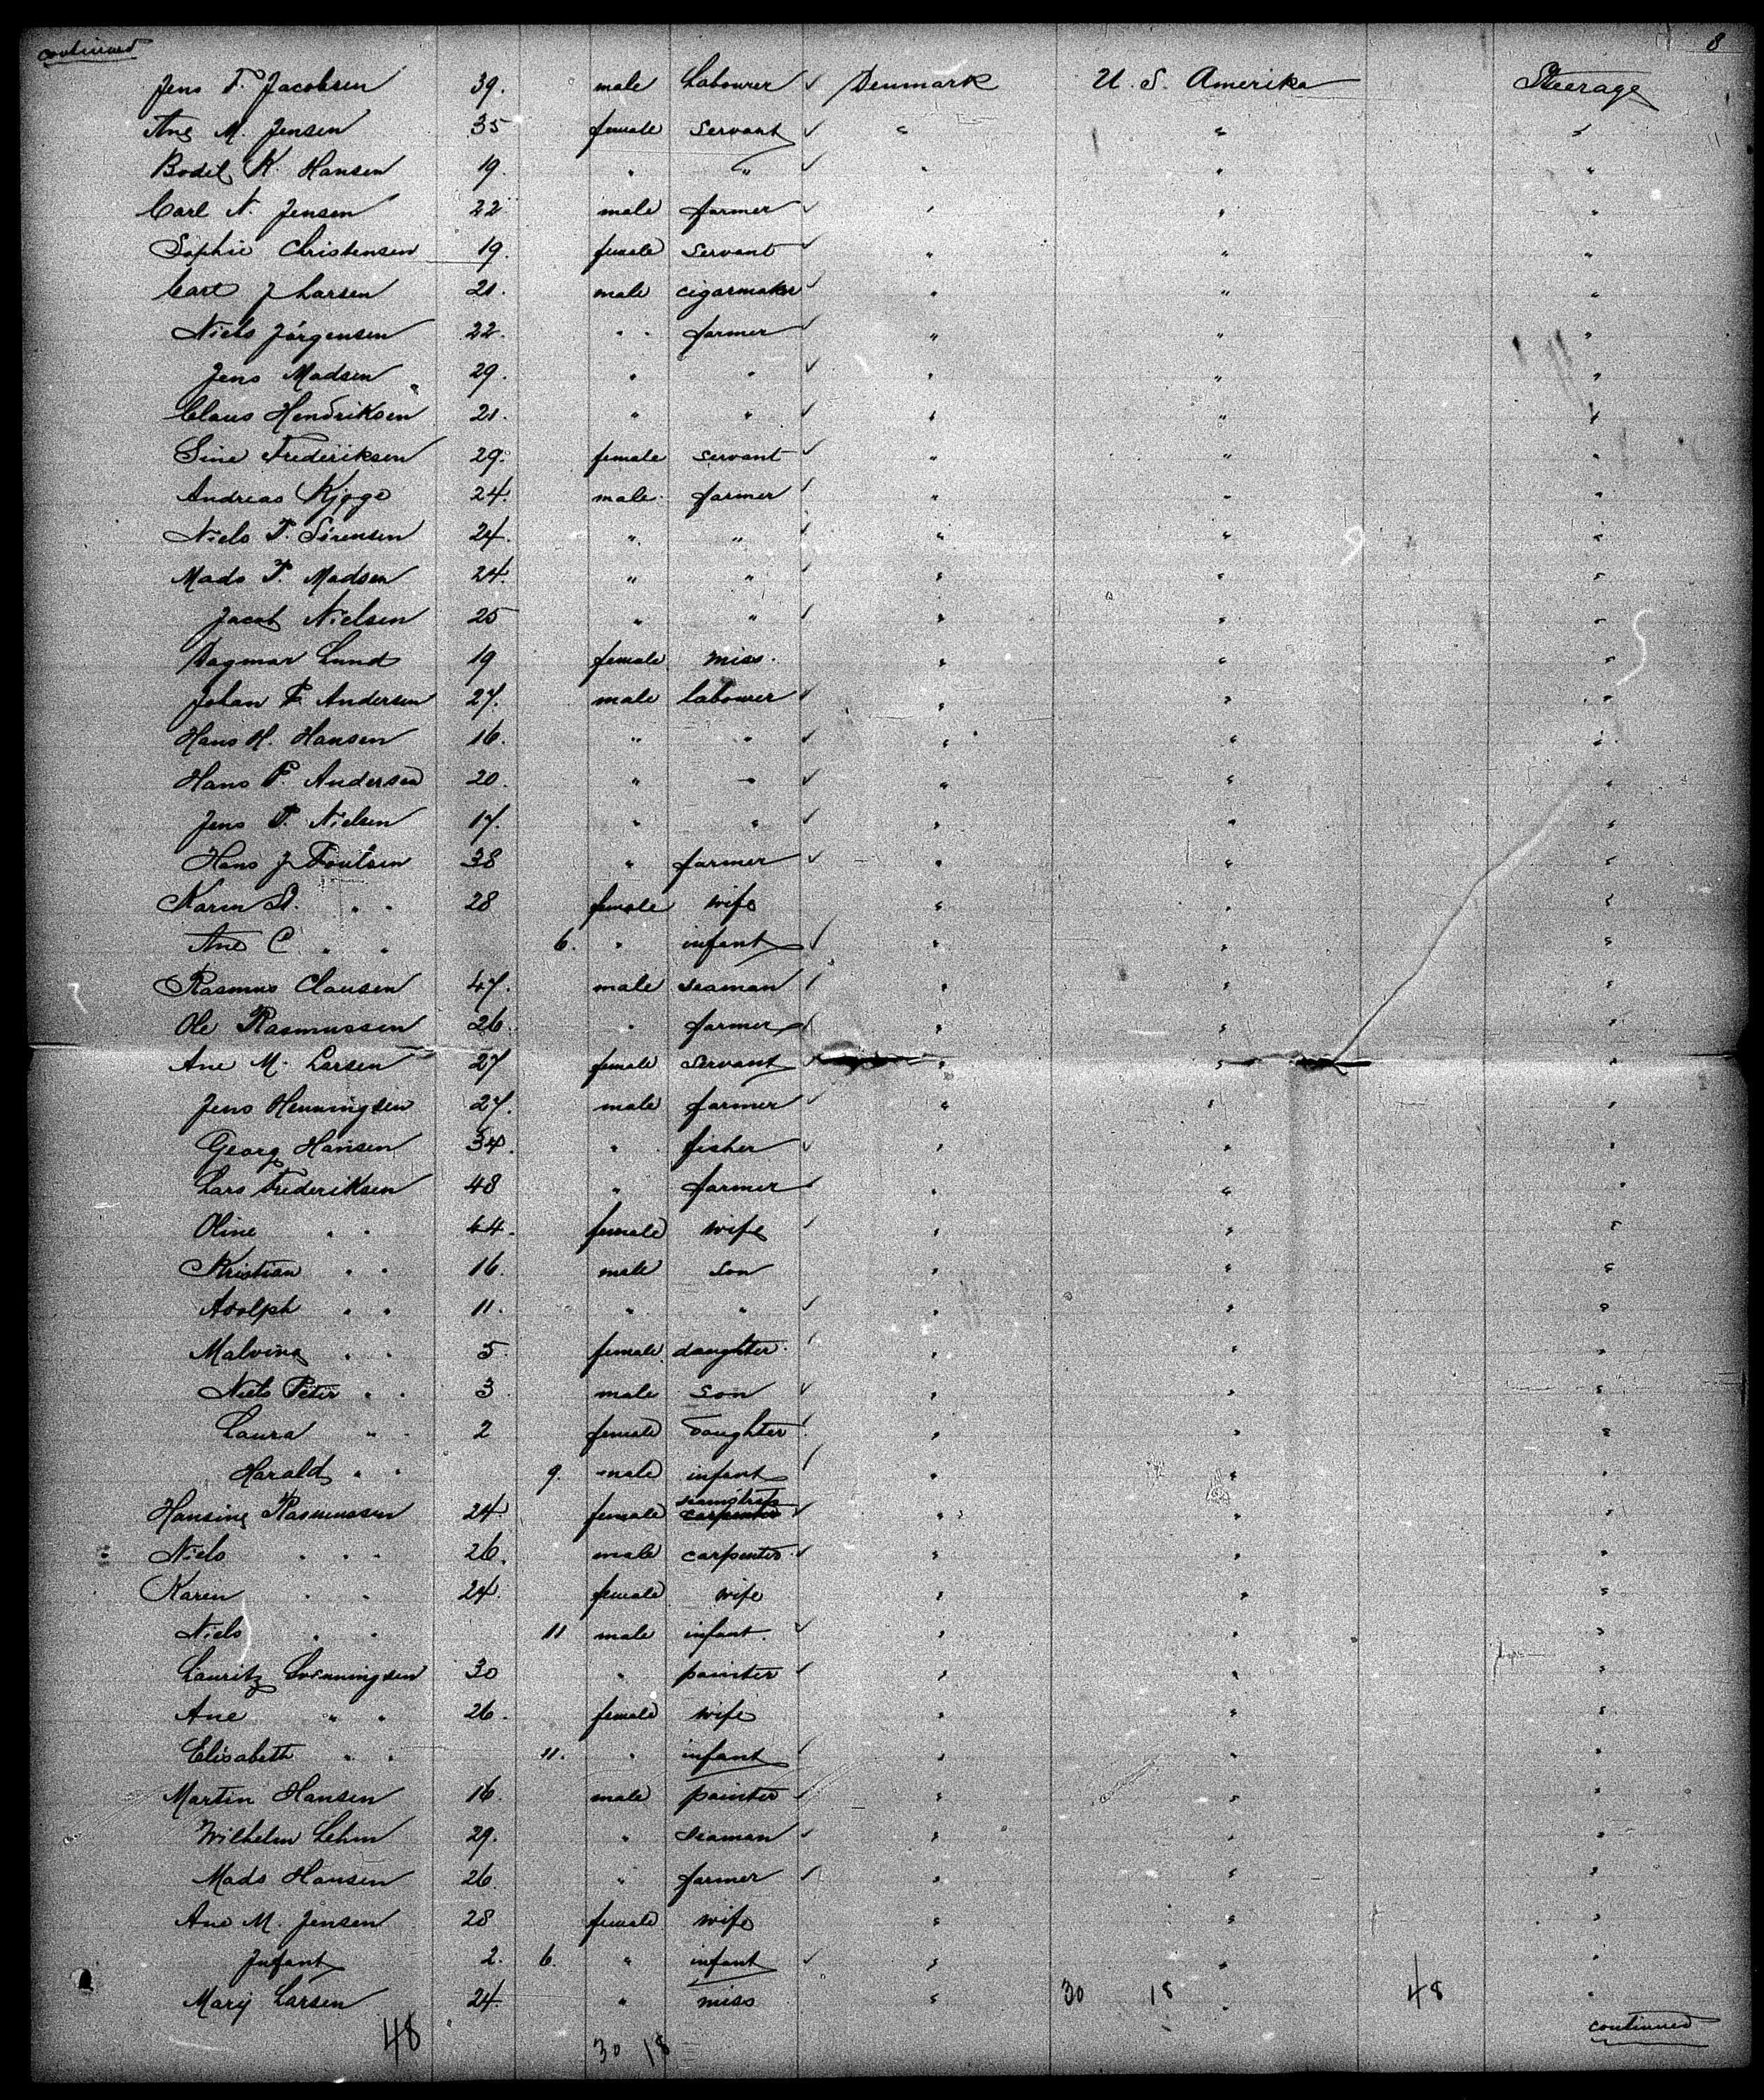 continued 8
Jens P. Jacobsen 39. male Labourer ✓ Denmark U. S. Amerika Steerage
Ane M. Jensen 35 female Servant ✓ " " "
Bodil K. Hansen 19. " " ✓ " " "
Carl N. Jensen 22 male farmer ✓ " " "
Sophie Christensen 19. female Servant ✓ " " "
Carl J Larsen 21. male cigarmaker ✓ " " "
Niels Jörgensen 22. " farmer ✓ " " "
Jens Madsen 29. " " ✓ " " "
Claus Hendriksen 21. " " ✓ " " "
Sine Frederiksen 29. female servant ✓ " " "
Andreas Kjøge 24. male farmer ✓ " " "
Niels P. Sörensen 24. " " ✓ " " "
Mads P. Madsen 24. " " ✓ " " "
Jacob Nielsen 25 " " ✓ " " "
Dagmar Lund 19 female miss. " " "
Johan P. Andersen 27. male labourer ✓ " " "
Hans H. Hansen 16. " " ✓ " " "
Hans P. Andersen 20. " " ✓ " " "
Jens P. Nielsen 17. " " ✓ " " "
Hans J Poulsen 38 " farmer ✓ " " "
Karen " " 28 female wife " " "
Ane C. " " 6. " infant ✓ " " "
Rasmus Clausen 47. male seaman ✓ " " "
Ole Rasmussen 26. " farmer ✓ " " "
Ane M. Larsen 27 female servant ✓ " " "
Jens Henningsen 27. male farmer ✓ " " "
Georg Hansen 34. " fisher ✓ " " "
Lars Frederiksen 48 " farmer ✓ " " "
Oline " " 44. female wife ✓ " " "
Kristian " " 16. male son " " "
Adolph " " 11. " " ✓ " " "
Malvina " " 5 female daughter ✓ " " "
Niels Peter " " 3 male son ✓ " " "
Laura " " 2 female daughter ✓ " " "
Harald " " 9. male infant ✓ " " "
Hansine Rasmussen 24 female carpenter seamstress ✓ " " "
Niels " " 26. male carpenter ✓ " " "
Karen " " 24. female wife " " "
Niels " " 11 male infant. ✓ " " "
Lauritz 30 " painter ✓ " " "
Ane " " 26. female wife " " "
Elisabeth " " 11. " infant ✓ " " "
Martin Hansen 16. male painter ✓ " " "
Wilhelm Lehm 29. " seaman ✓ " " "
Mads Hansen 26. " farmer ✓ " " "
Ane M. Jensen 28 female wife " " "
Infant 2. 6. " infant ✓ " " "
Mary Larsen 24. " miss " 30 18 " 48 "
48 30 18 continued